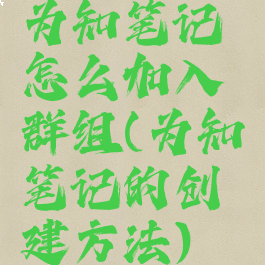 为知笔记
怎么加入
群组(为知
笔记的创
建方法)